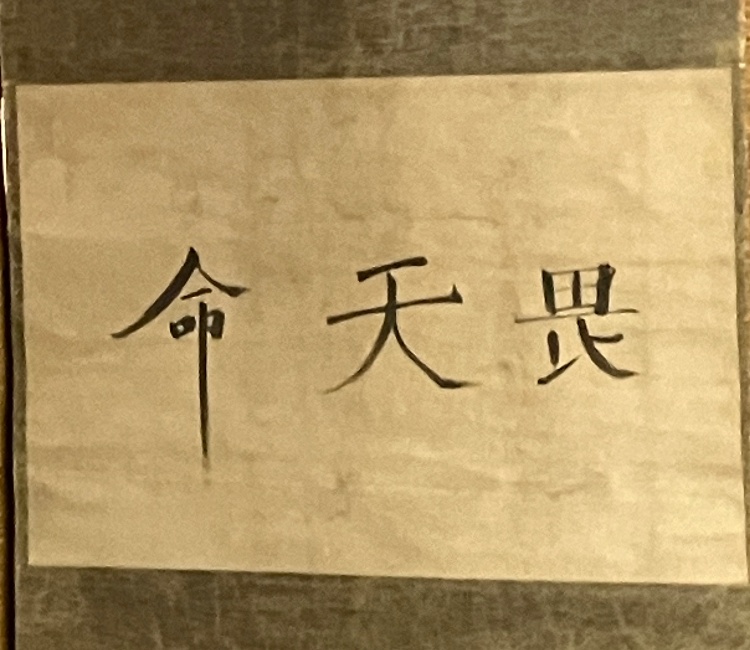 畏天命